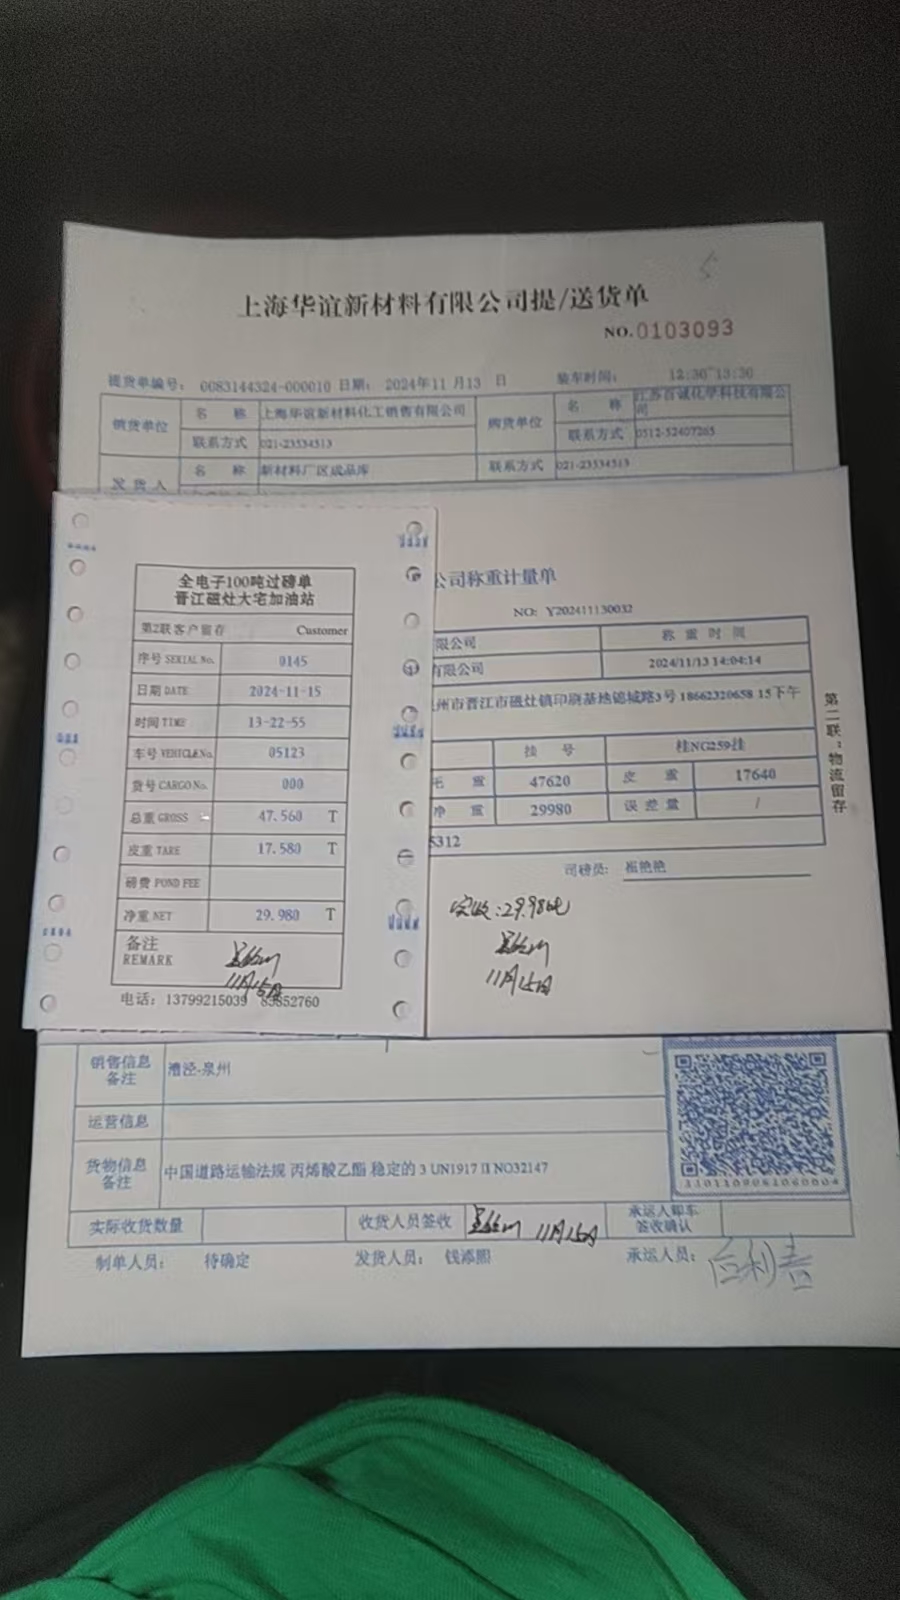 上海华谊新材料有限公司提/送货单
NO.0103093
提货单编号: 0083144324-000010 日期: 2024年11月13 日 装车时间: 12:30~13:30
销货单位 名 称 上海华谊新材料化工销售有限公司 购货单位 名 称 江苏百诚化学科技有限公司
联系方式 021-23534513 联系方式 0512-52407265
发 货 人 名 称 新材料厂区成品库 联系方式 021-23534513
全电子100吨过磅单
晋江磁灶大宅加油站
第2联客户留存 Customer
序号 SERIAL No. 0145
日期 DATE 2024-11-15
时间 TIME 13-22-55
车号 VEHICLE No. 05123
货号 CARGO No. 000
总重 GROSS 47.560 T
皮重 TARE 17.580 T
磅费 POND FEE
净重 NET 29.980 T
备注
REMARK
11月15日
电话: 13799215039 85852760
公司称重计量单
NO: Y202411130032
限公司 称 重 时 间
有限公司 2024/11/13 14:04:14
州市晋江市磁灶镇印刷基地锦城路3号 18662320658 15下午
挂 号 桂NG259挂
毛 重 47620 皮 重 17640
净 重 29980 误 差 量 /
5312
司磅员: 崔艳艳
第二联:物流留存
实收:29.98吨
11月15日
销售信息备注 漕泾-泉州
运营信息
货物信息备注 中国道路运输法规 丙烯酸乙酯 稳定的 3 UN1917 II NO32147
实际收货数量 收货人员签收 11月15日 承运人卸车签收确认
制单人员: 待确定 发货人员: 钱添熙 承运人员: